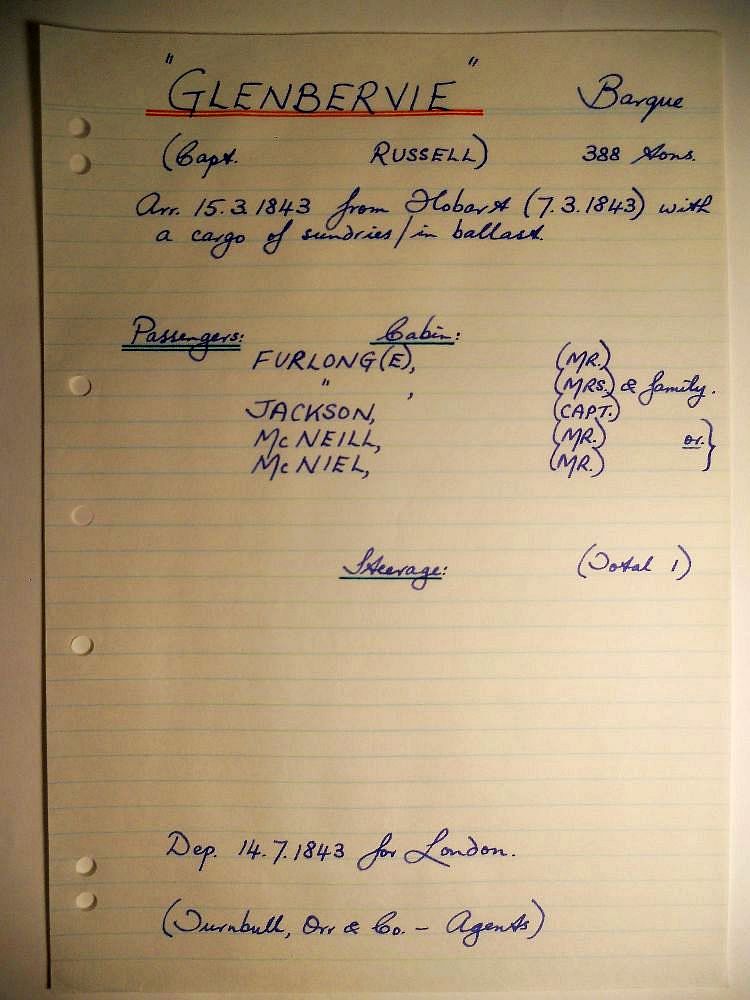 "GLENBERVIE" Barque
(Capt. RUSSELL) 388 tons.
Arr. 15.3.1843 from Hobart (7.3.1843) with
a cargo of sundries/in ballast.
Passengers: Cabin:
FURLONG(E), (MR.)
" , (MRS.) & family.
JACKSON, (CAPT.)
McNEILL, (MR.) or }
McNIEL, (MR.)
Steerage: (Total 1)
Dep. 14.7.1843 for London.
(Turnbull, Orr & Co. - Agents)